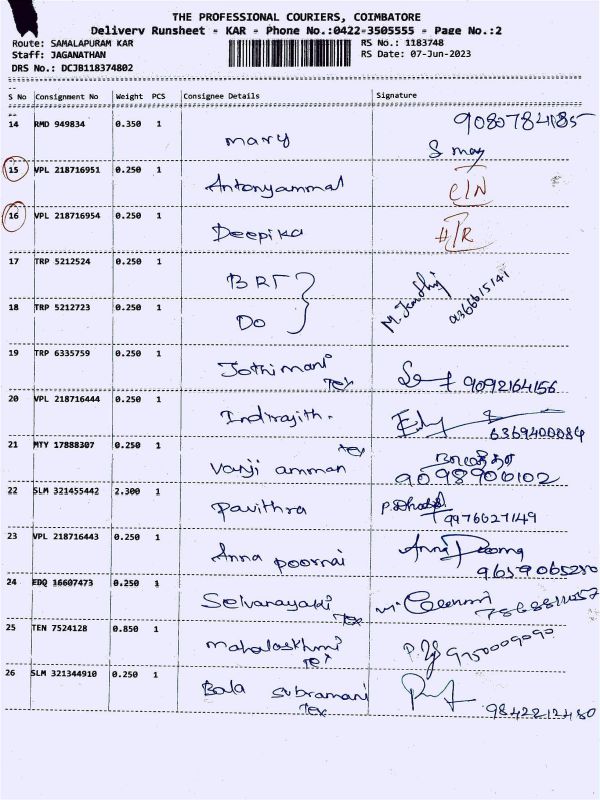 THE PROFESSIONAL COURIERS, COIMBATORE
Delivery Runsheet - KAR - Phone No.:0422-3505555 - Page No.:2
Route: SAMALAPURAM KAR RS No.: 1183748
Staff: JAGANATHAN RS Date: 07-Jun-2023
DRS No.: DCJB118374802
S No Consignment No Weight PCS Consignee Details Signature
14 RMD 949834 0.350 1 mary 9080784185
S may
15 VPL 218716951 0.250 1 Antonyammal
16 VPL 218716954 0.250 1 Deepika
17 TRP 5212524 0.250 1 BRT
18 TRP 5212723 0.250 1 Do
19 TRP 6335759 0.250 1 Jothimani Tex 9092164156
20 VPL 218716444 0.250 1 Indirajith. 6369400084
21 MTY 17888307 0.250 1 Vanji amman tex 9098906102
22 SLM 321455442 2.300 1 Pavithra 9976027149
23 VPL 218716443 0.250 1 Anna poornai 9659065280
24 EDQ 16607473 0.250 1 Selvanayaki Tex
25 TEN 7524128 0.850 1 mahalaskhmi Tex 9750009090
26 SLM 321344910 0.250 1 Bala subramani Tex 9842212480